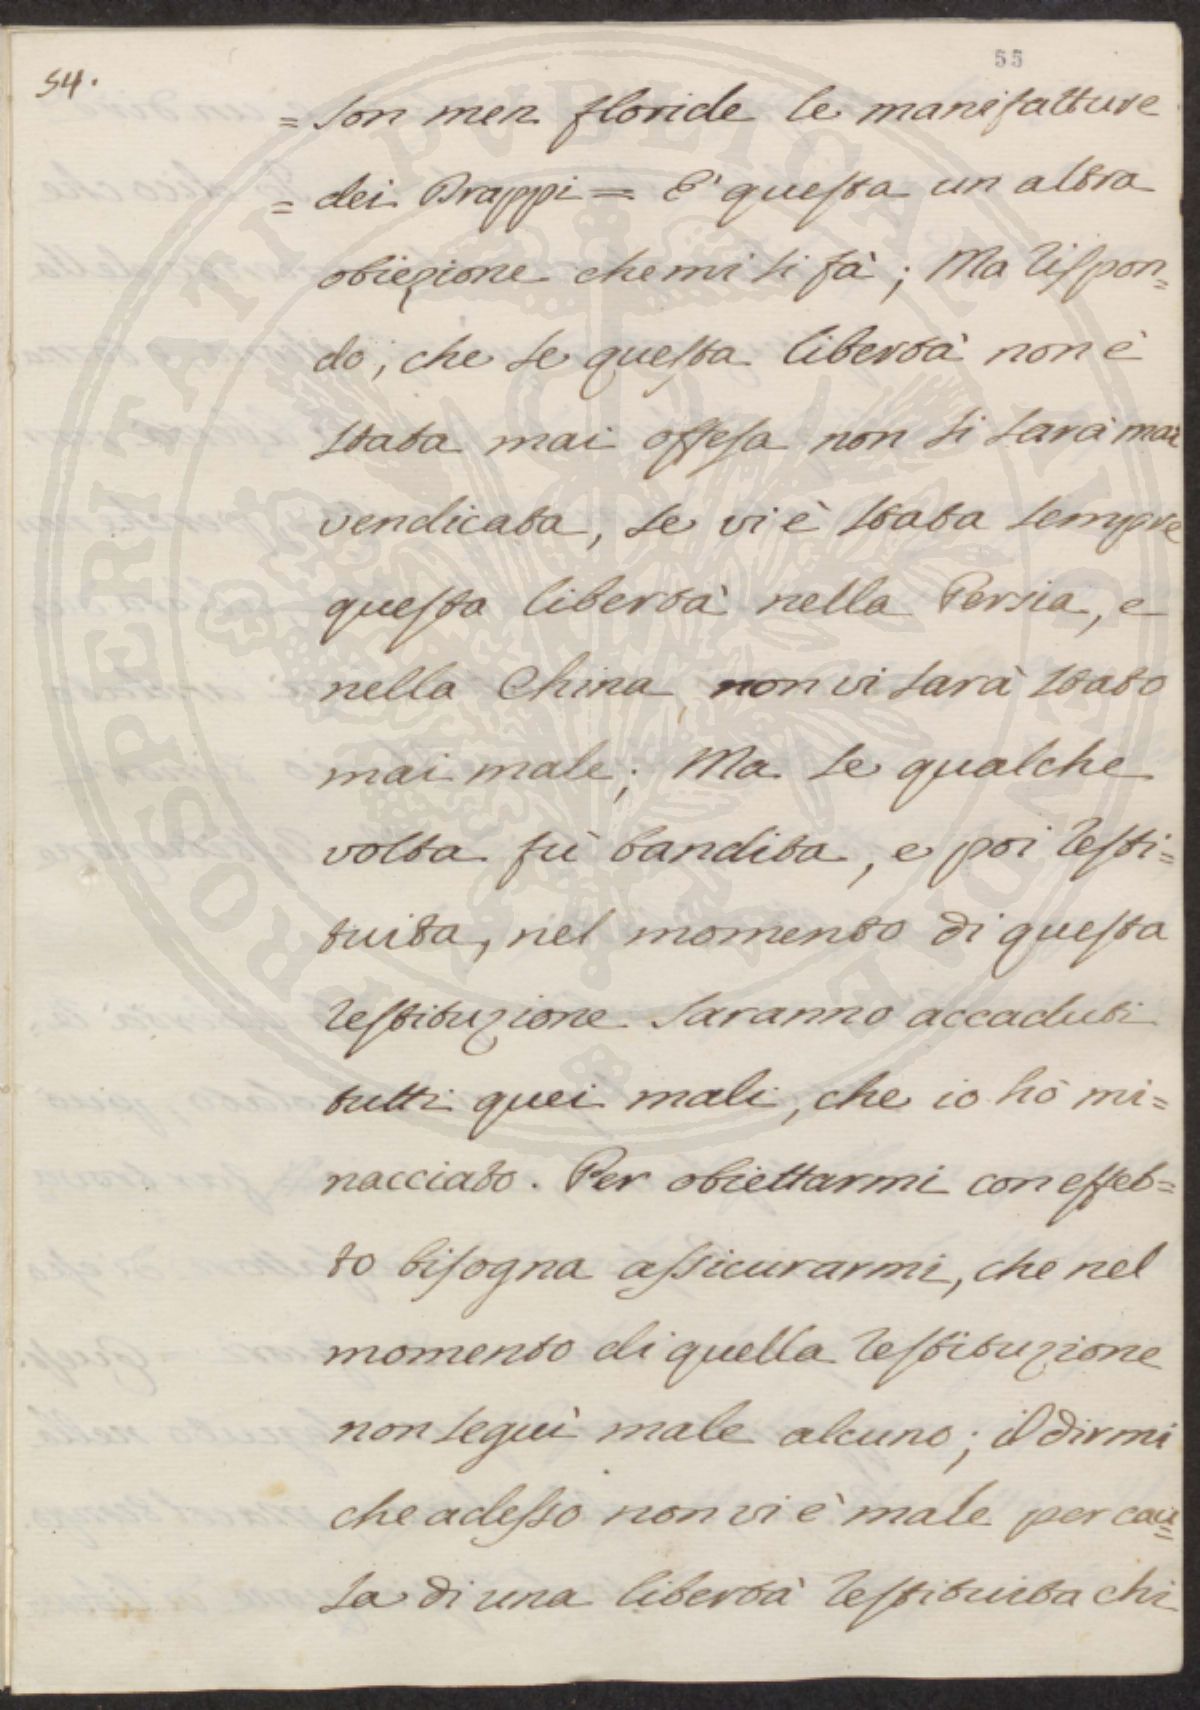 55
54.
= son men floride le manifatture
= dei Drappi = E' questa un altra
obiezione che mi si fà; Ma rispon=
do, che se questa libertà non è
stata mai offesa non si sarà mai
vendicata, se vi è stata sempre
questa libertà nella Persia, e
nella China, non vi sarà stato
mai male; Ma se qualche
volta fù bandita, e poi resti=
tuita, nel momento di questa
restituzione saranno accaduti
tutti quei mali, che io hò mi=
nacciato. Per obiettarmi con effet=
to bisogna assicurarmi, che nel
momento di quella restituzione
non seguì male alcuno; il dirmi
che adesso non vi è male per cau=
sa di una libertà restituita chi
PROSPERITATI PUBLICAE